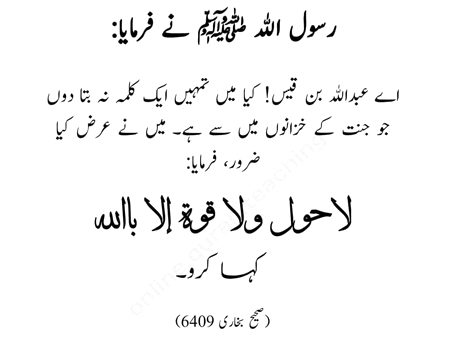 رسول اللہ ﷺ نے فرمایا:
اے عبداللہ بن قیس! کیا میں تمہیں ایک کلمہ نہ بتا دوں
جو جنت کے خزانوں میں سے ہے۔ میں نے عرض کیا
ضرور، فرمایا:
لا حول ولا قوة إلا بالله
کہا کرو۔
(صحیح بخاری 6409)